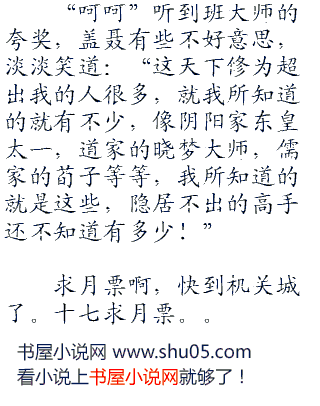 “呵呵”听到班大师的
夸奖，盖聂有些不好意思，
淡淡笑道：“这天下修为超
出我的人很多，就我所知道
的就有不少，像阴阳家东皇
太一，道家的晓梦大师，儒
家的荀子等等，我所知道的
就是这些，隐居不出的高手
还不知道有多少！”
求月票啊，快到机关城
了。十七求月票。。
书屋小说网 www.shu05.com
看小说上书屋小说网就够了！